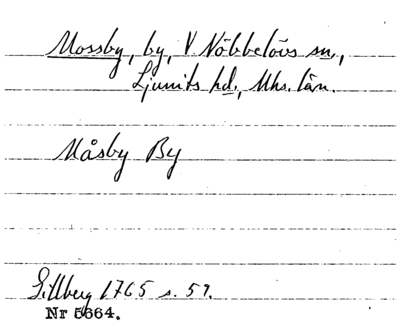 Mossby, by, V Nöbbelövs sn,
Ljunits hd., Mhs. län.
Måsby By
Gillberg 1765 s. 59.
Nr 5664.